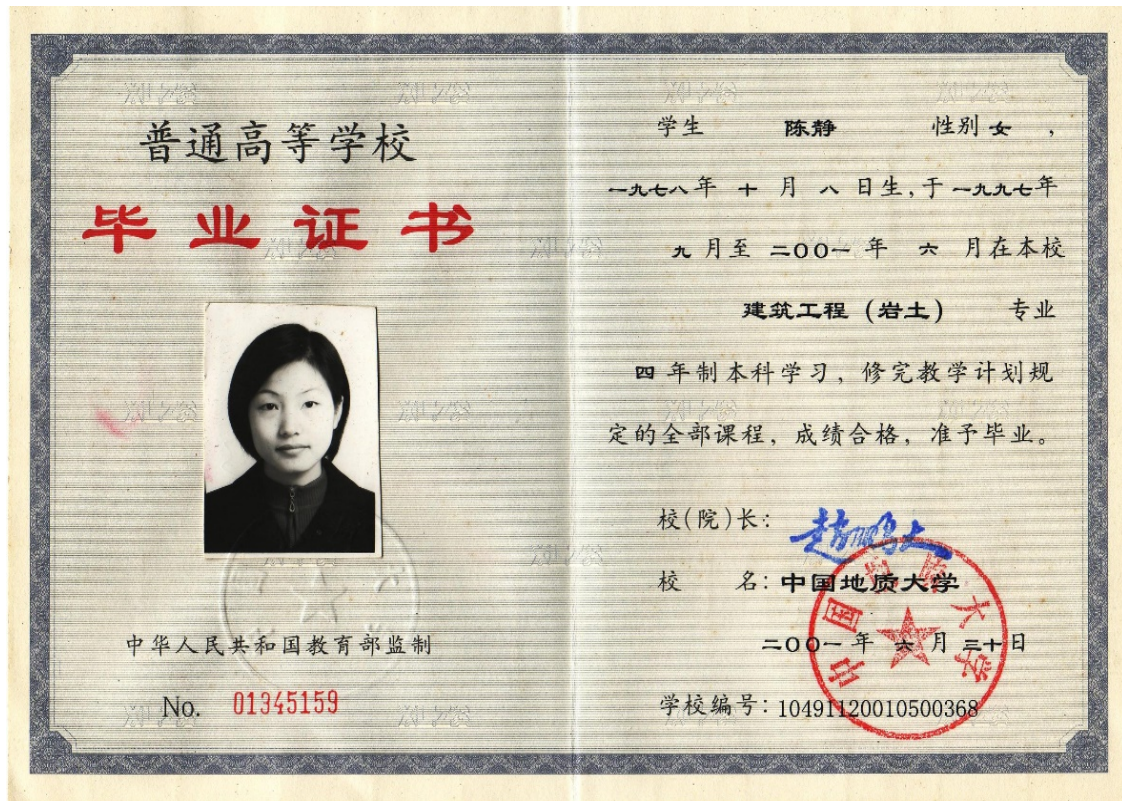 普通高等学校
毕业证书
中华人民共和国教育部监制
No. 01345159
学生 陈静 性别 女，
一九七八年 十 月 八 日生，于 一九九七年
九 月至 二00一 年 六 月在本校
建筑工程（岩土） 专业
四 年制本科学习，修完教学计划规
定的全部课程，成绩合格，准予毕业。
校(院)长：赵鹏大
校 名：中国地质大学
二00一 年 六 月 三十日
学校编号：10491120010500368
中国地质大学